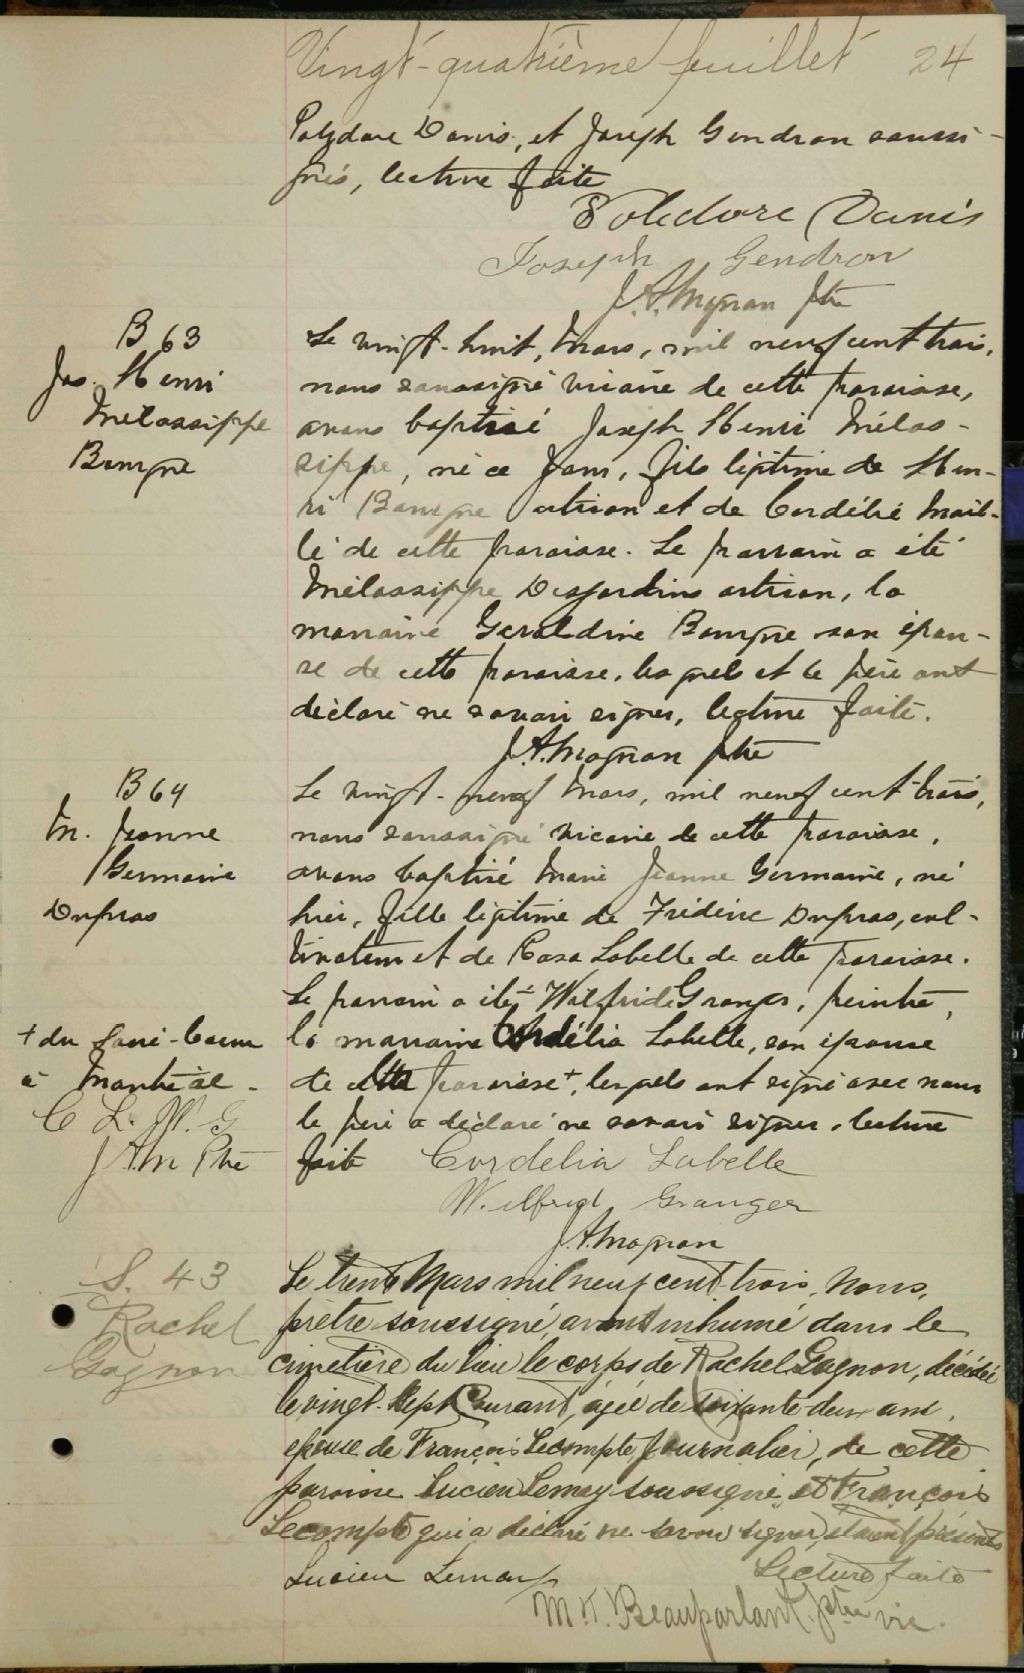 Vingt-quatrième feuillet 24
Polydore Danis, et Joseph Gendron soussi-
gnés, lecture faite
Polidore Danis
Joseph Gendron
J.A. Magnan Ptre
B 63
Jos. Henri
Mélassippe
Bourgne
Le vingt-huit, Mars, mil neuf cent trois,
nous soussigné vicaire de cette paroisse,
avons baptisé Joseph Henri Mélas-
sippe, né ce jour, fils légitime de Hen-
ri Bourgne artisan et de Cordélie Mail-
lé de cette paroisse. Le parrain a été
Mélassippe Desjardins artisan, la
marraine Geraldine Bourgne son épou-
se de cette paroisse, lesquels et le père ont
déclaré ne savoir signer, lecture faite.
J.A. Magnan Ptre
B 64
M. Jeanne
Germaine
Dupras
Le vingt-neuf Mars, mil neuf cent-trois,
nous soussigné vicaire de cette paroisse,
avons baptisé Marie Jeanne Germaine, né
hier, fille légitime de Frédéric Dupras, cul-
tivateur et de Rosa Labelle de cette paroisse.
Le parrain a été Wilfrid Granger, peintre,
la marraine Cordélia Labelle, son épouse
de cette paroisse+, lesquels ont signé avec nous
le père a déclaré ne savoir signer. lecture
faite
+ du Sacré-Coeur
à Montréal -
C L. W. G
J A M Ptre
Cordelia Labelle
Wilfrid Granger
J.A. Magnan
S. 43
Rachel
Gagnon
Le trente Mars mil neuf cent-trois, Nous,
prêtre soussigné, avons inhumé dans le
cimetière du lieu le corps de Rachel Gagnon, décédée
le vingt-sept courant, âgée de soixante-deux ans,
épouse de François Lecompte, journalier, de cette
paroisse. Lucien Lemay soussigné, et François
Lecompte qui a déclaré ne savoir signer, étaient présents
Lecture faite
Lucien Lemay
M. A. Beauparlant, ptre vic.